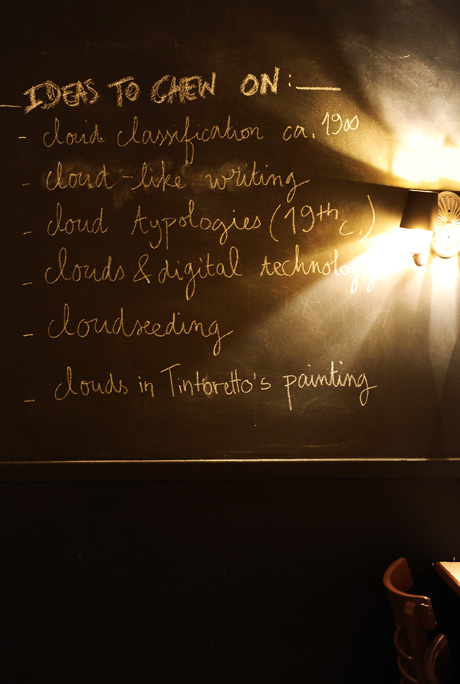 IDEAS TO CHEW ON:—
- cloud classification ca. 1900
- cloud-like writing
- cloud typologies (19th c.)
- clouds & digital technology
- cloudseeding
- clouds in Tintoretto's painting